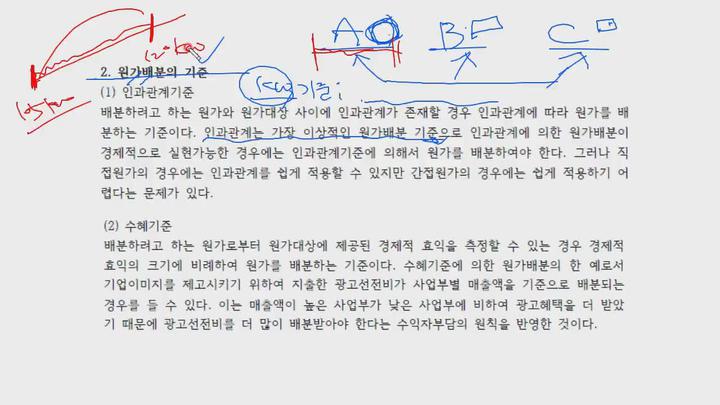 A B C
120km
105km
2. 원가배분의 기준
kw 기준;
(1) 인과관계기준
배분하려고 하는 원가와 원가대상 사이에 인과관계가 존재할 경우 인과관계에 따라 원가를 배
분하는 기준이다. 인과관계는 가장 이상적인 원가배분 기준으로 인과관계에 의한 원가배분이
경제적으로 실현가능한 경우에는 인과관계기준에 의해서 원가를 배분하여야 한다. 그러나 직
접원가의 경우에는 인과관계를 쉽게 적용할 수 있지만 간접원가의 경우에는 쉽게 적용하기 어
렵다는 문제가 있다.
(2) 수혜기준
배분하려고 하는 원가로부터 원가대상에 제공된 경제적 효익을 측정할 수 있는 경우 경제적
효익의 크기에 비례하여 원가를 배분하는 기준이다. 수혜기준에 의한 원가배분의 한 예로서
기업이미지를 제고시키기 위하여 지출한 광고선전비가 사업부별 매출액을 기준으로 배분되는
경우를 들 수 있다. 이는 매출액이 높은 사업부가 낮은 사업부에 비하여 광고혜택을 더 받았
기 때문에 광고선전비를 더 많이 배분받아야 한다는 수익자부담의 원칙을 반영한 것이다.